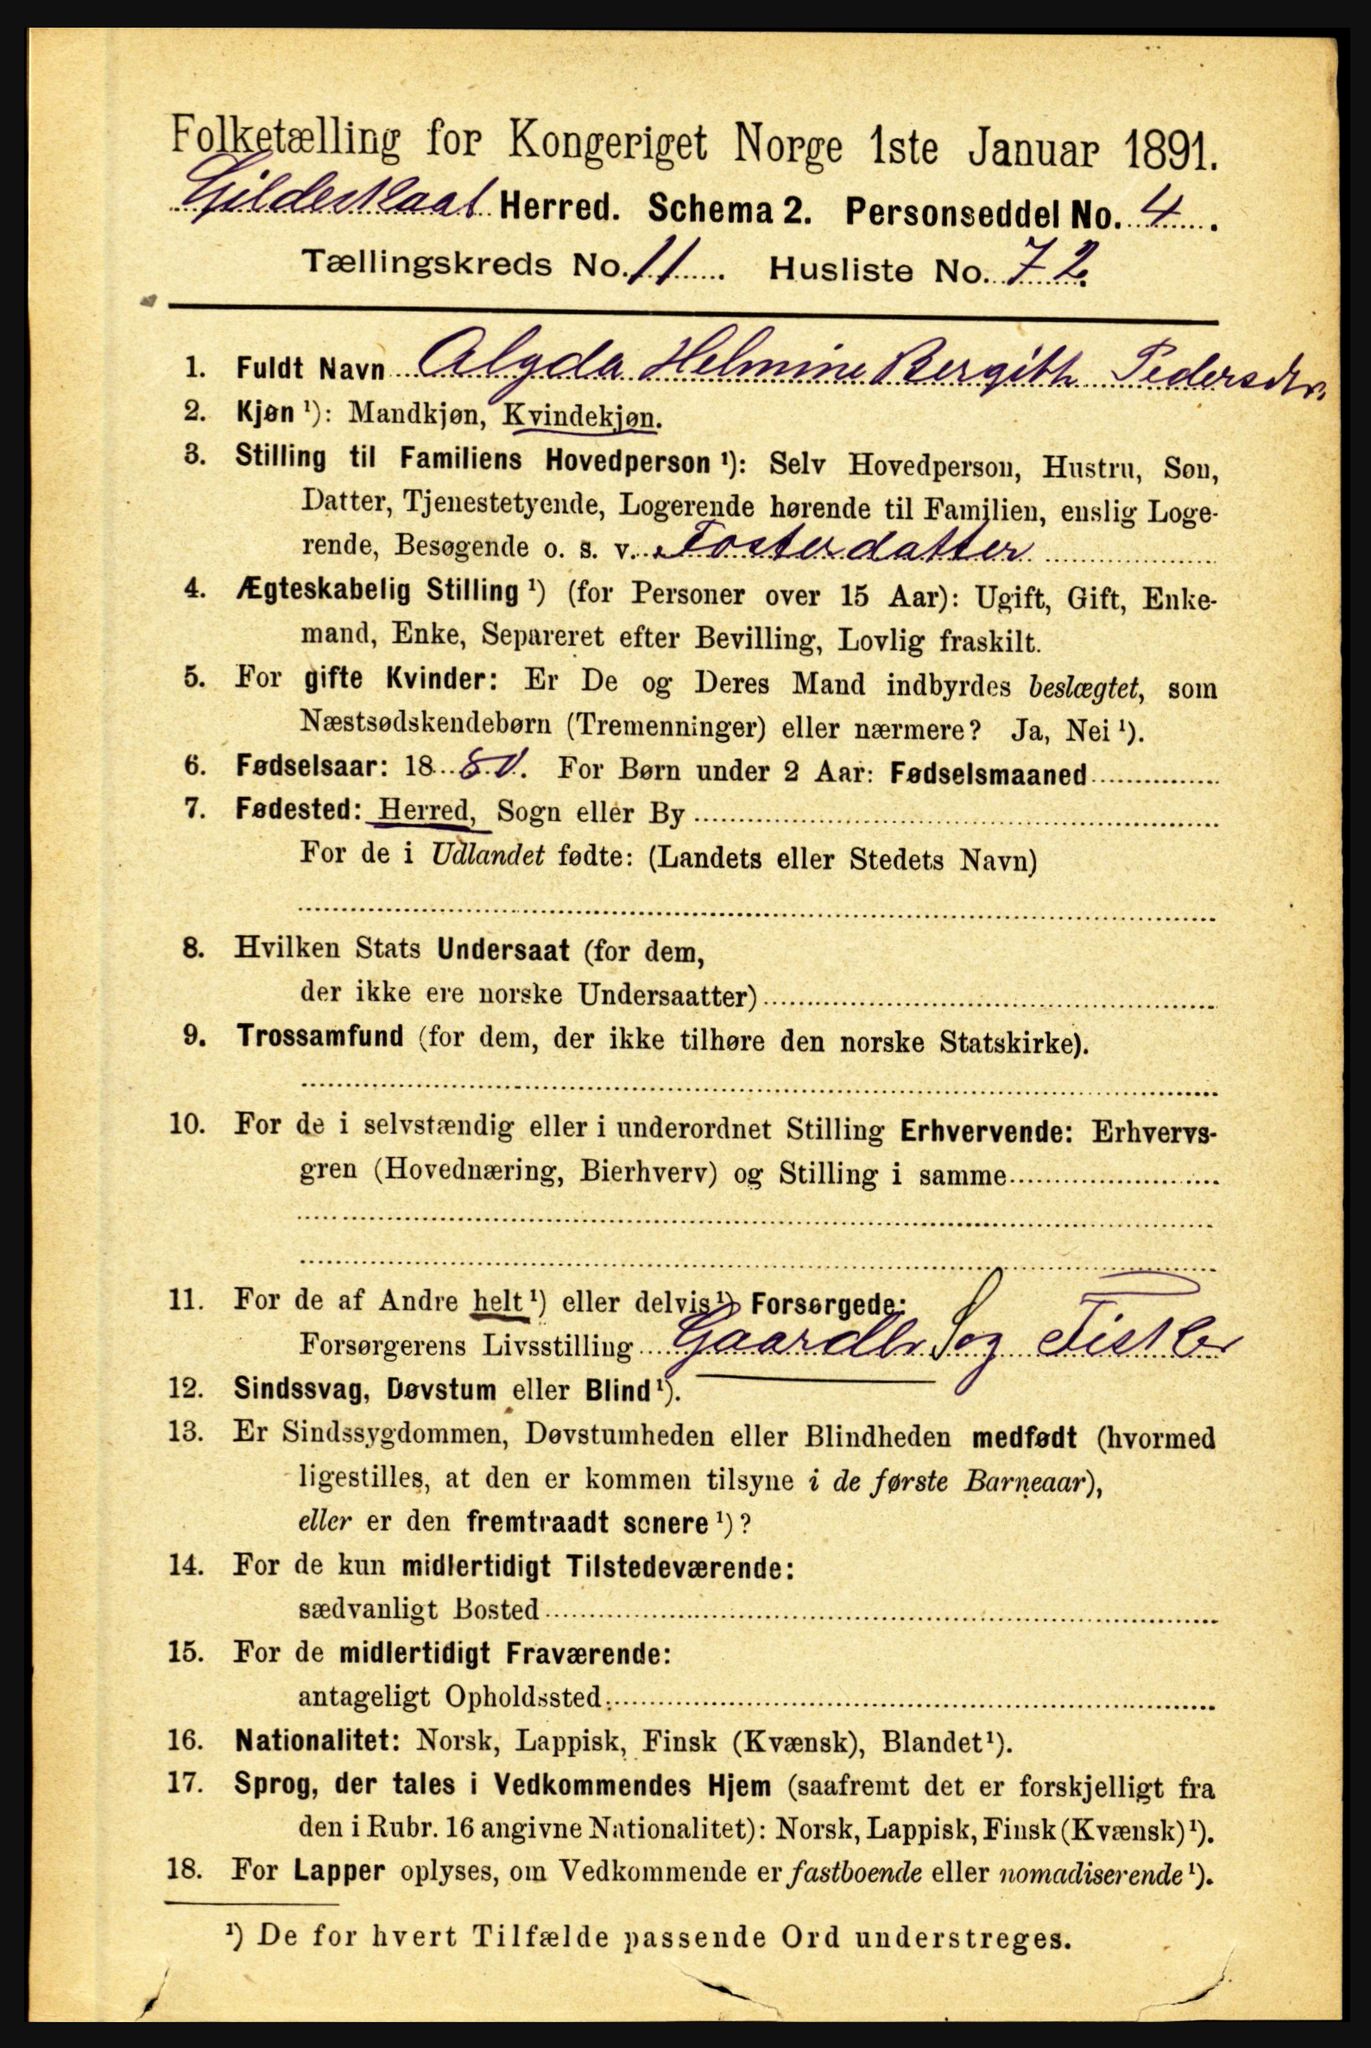 Folketælling for Kongeriget Norge 1ste Januar 1891.
Gildeskaal Herred. Schema 2. Personseddel No. 4.
Tællingskreds No. 11. Husliste No. 72.
1. Fuldt Navn Alyda Helmine Bergith Pedersdtr.
2. Kjøn ¹): Mandkjøn, Kvindekjøn.
3. Stilling til Familiens Hovedperson ¹): Selv Hovedperson, Hustru, Søn,
Datter, Tjenestetyende, Logerende hørende til Familien, enslig Loge-
rende, Besøgende o. s. v. Fosterdatter
4. Ægteskabelig Stilling ¹) (for Personer over 15 Aar): Ugift, Gift, Enke-
mand, Enke, Separeret efter Bevilling, Lovlig fraskilt.
5. For gifte Kvinder: Er De og Deres Mand indbyrdes beslægtet, som
Næstsødskendebørn (Tremenninger) eller nærmere? Ja, Nei ¹).
6. Fødselsaar: 1880. For Børn under 2 Aar: Fødselsmaaned
7. Fødested: Herred, Sogn eller By
For de i Udlandet fødte: (Landets eller Stedets Navn)
8. Hvilken Stats Undersaat (for dem,
der ikke ere norske Undersaatter)
9. Trossamfund (for dem, der ikke tilhøre den norske Statskirke).
10. For de i selvstændig eller i underordnet Stilling Erhvervende: Erhvervs-
gren (Hovednæring, Bierhverv) og Stilling i samme
11. For de af Andre helt ¹) eller delvis ¹) Forsørgede:
Forsørgerens Livsstilling Gaardbr S og Fisker
12. Sindssvag, Døvstum eller Blind ¹).
13. Er Sindssygdommen, Døvstumheden eller Blindheden medfødt (hvormed
ligestilles, at den er kommen tilsyne i de første Barneaar),
eller er den fremtraadt senere ¹)?
14. For de kun midlertidigt Tilstedeværende:
sædvanligt Bosted
15. For de midlertidigt Fraværende:
antageligt Opholdssted
16. Nationalitet: Norsk, Lappisk, Finsk (Kvænsk), Blandet ¹).
17. Sprog, der tales i Vedkommendes Hjem (saafremt det er forskjelligt fra
den i Rubr. 16 angivne Nationalitet): Norsk, Lappisk, Finsk (Kvænsk) ¹).
18. For Lapper oplyses, om Vedkommende er fastboende eller nomadiserende ¹).
¹) De for hvert Tilfælde passende Ord understreges.